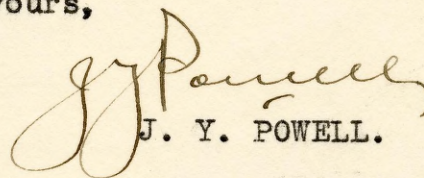 yours,
J Y Powell
J. Y. POWELL.